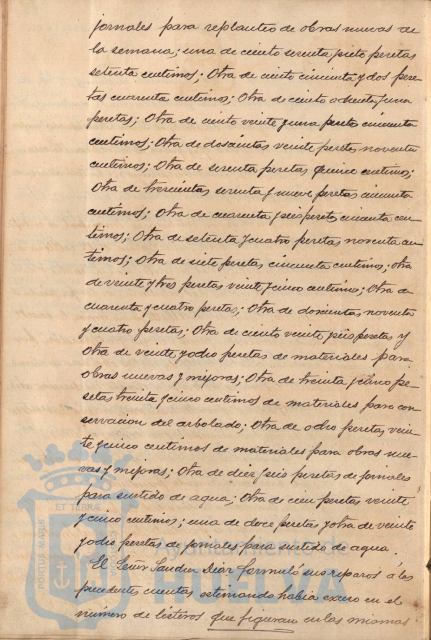 jornales para replanteo de obras nuevas de
la semana; una de ciento setenta siete pesetas
setenta centimos; Otra de ciento cincuenta y dos pese-
tas cuarenta centimos; Otra de ciento ochenta y una
pesetas; Otra de ciento veinte y una pesetas cincuenta
centimos; Otra de doscientas veinte pesetas noventa
centimos; Otra de sesenta pesetas cinco centimos;
Otra de trescientas sesenta y nueve pesetas cincuenta
centimos; Otra de cuarenta y seis pesetas cincuenta cen-
timos; Otra de setenta y cuatro pesetas noventa cen-
timos; Otra de siete pesetas cincuenta centimos; Otra
de veinte y tres pesetas veinte y cinco centimos; Otra de
cuarenta y cuatro pesetas; Otra de doscientas noventa
y cuatro pesetas; Otra de ciento veinte y seis pesetas y
Otra de veinte y ocho pesetas de materiales para
obras nuevas y mejoras; Otra de treinta y cinco pe-
setas treinta y cinco centimos de materiales para con
servacion del arbolado; Otra de ocho pesetas vein
te y cinco centimos de materiales para obras nue-
vas y mejoras; Otra de diez y seis pesetas de jornales
para surtido de agua; Otra de cien pesetas veinte
y cinco centimos; una de doce pesetas y otra de veinte
y ocho pesetas de jornales para surtido de agua.
El Señor Sanchez Diaz formuló sus reparos á las
precedentes cuentas estimando había exceso en el
número de listeros que figuran en las mismas
ET TERRÆ
PORTUS MARIS
Ayuntamiento de
HUELVA